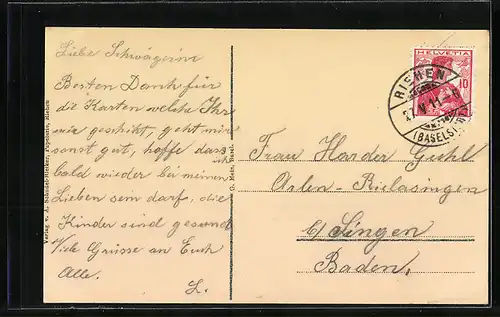 Liebe Schwägerin
Besten Dank für
die Karten welche Ihr
mir geschikt, geht mir
sonst gut, hoffe dass ich
bald wieder bei meinen
Lieben sein darf, die
Kinder sind gesund
Viele Grüsse an Euch
Alle.
L.
Verlag v. A. Schudel-Bleiker, Papeterie, Riehen
G. Metz, Basel.
HELVETIA
10
RIEHEN
(BASELST.)
Frau Harder Guhl
Arlen-Rielasingen
b/Singen
Baden.